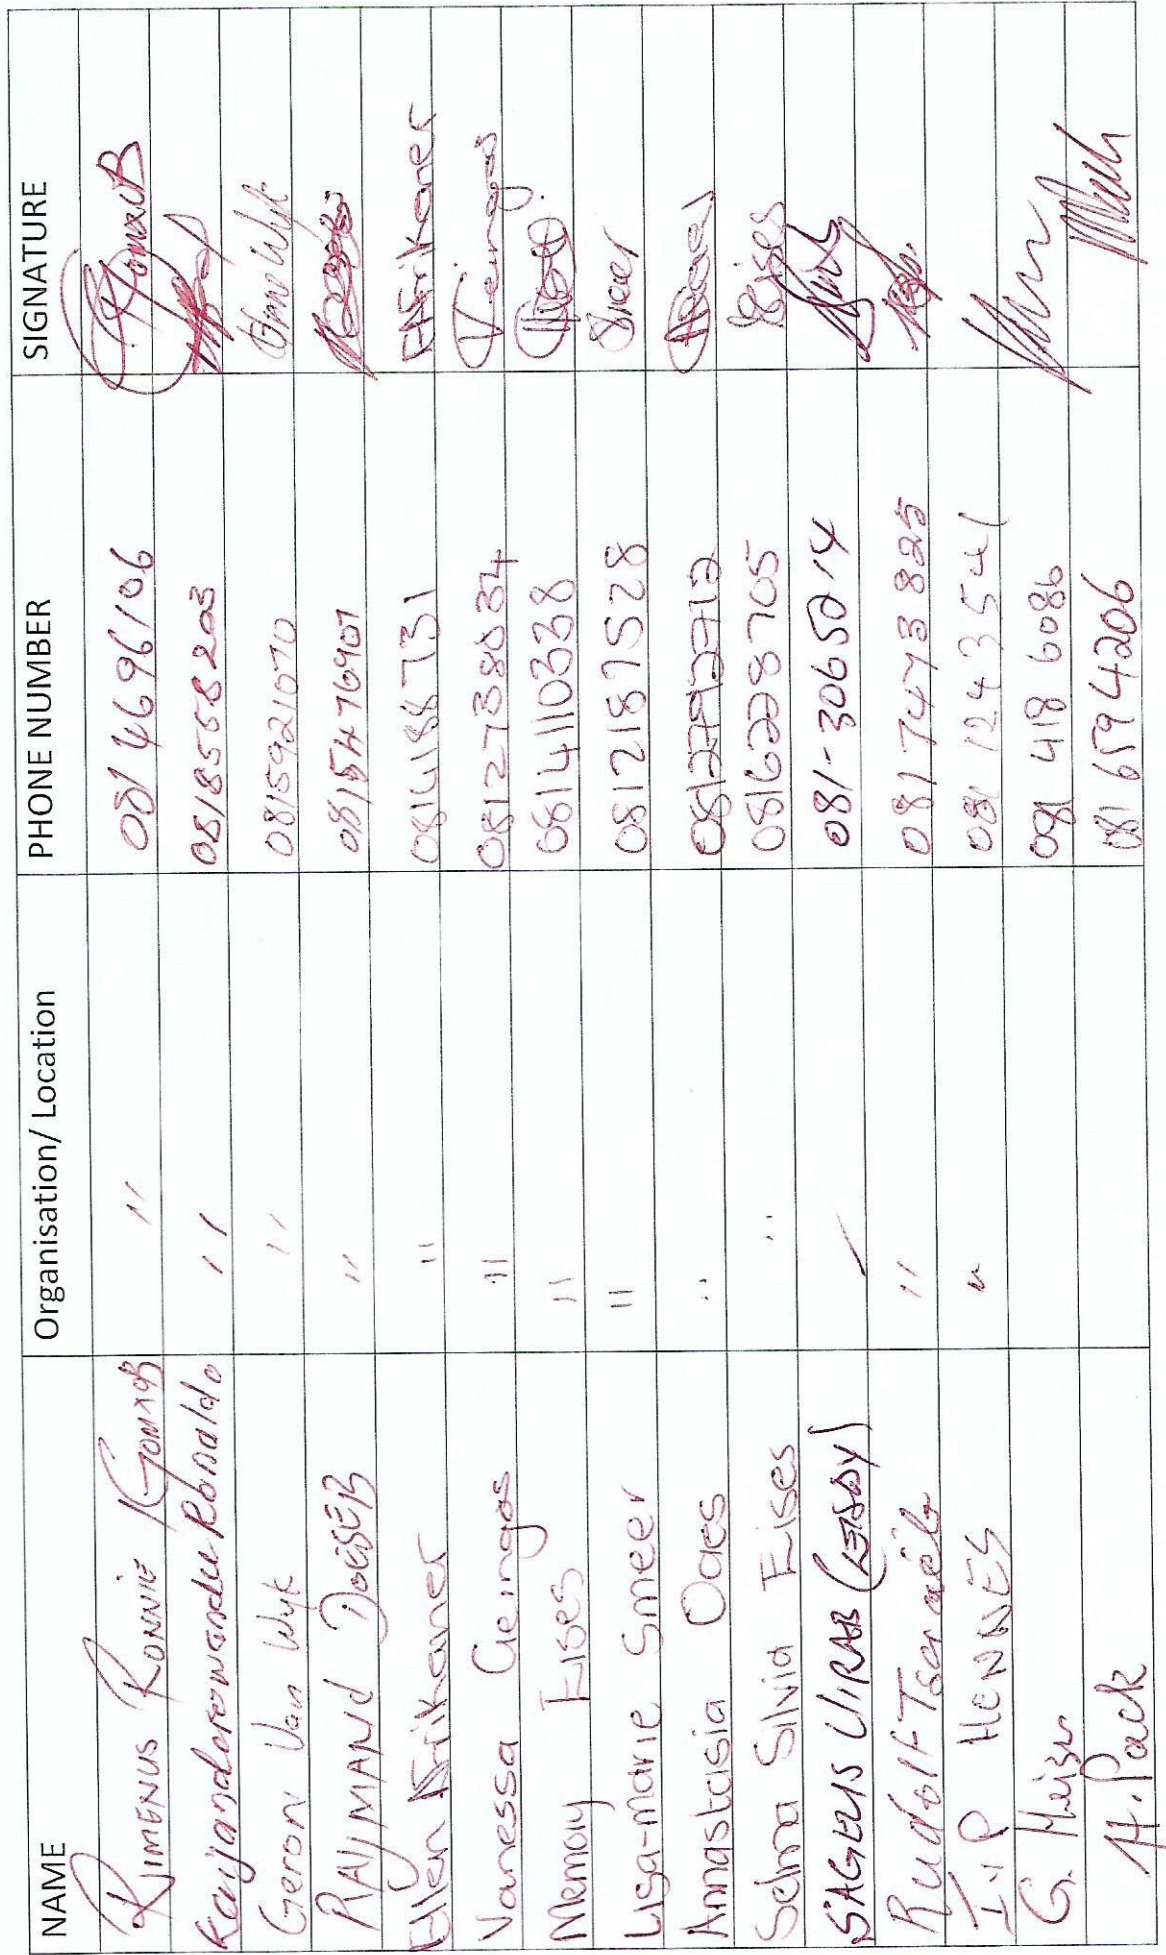 NAME Organisation/ Location PHONE NUMBER SIGNATURE
RIMENUS RONNIE !GOMXOB " 081 4696106
Kaijanderowandu Ronaldo " 0818558203
Geron Van Wyk " 0815921070 GhnoWyk
RAIJMAND DOËSEB " 0815476901
Ellen Afrikaner " 0814188731 EAfrikaner
Vanessa Geingos " 0812738834 VGeingos
Memory Eises " 0814110338
Lisa-marie Smeer " 0812187528 Smeer
Annastasia Oaes " 0812792712
Selma Silvia Eises " 0816228705 Eises
SAGEUS UIRAB (LETSOY) 081-3065214
Rudolf Tsanaéb " 081 7473825
I.P HENNES " 081 1243541
G. Meizu 081 418 6086
H. Pack 081 659 4206